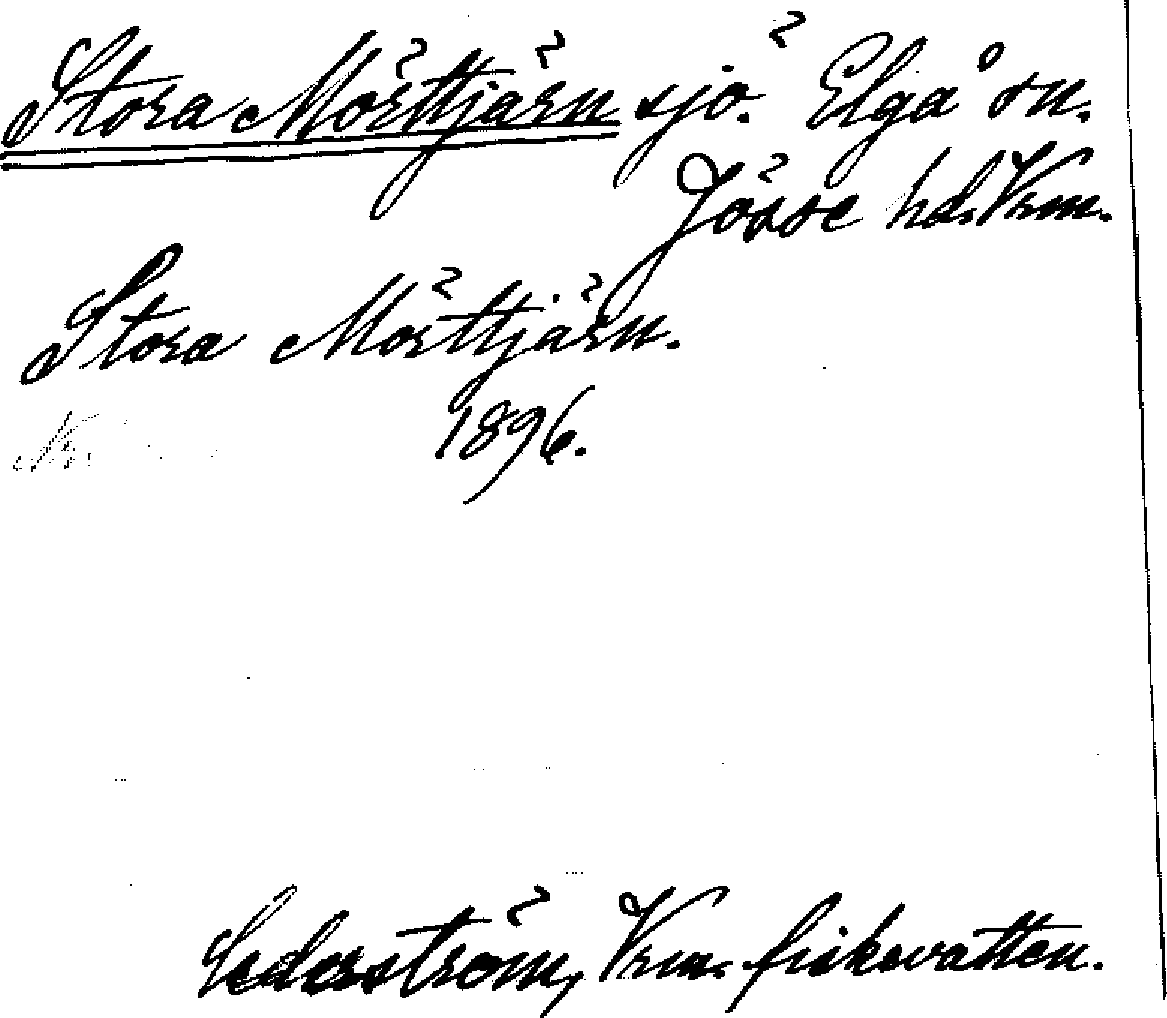 Stora Mörttjärn sjö. Elgå sn.
Jösse hd. Vrm.
Stora Mörttjärn.
1896.
Cederström, Vrm. fiskevatten.